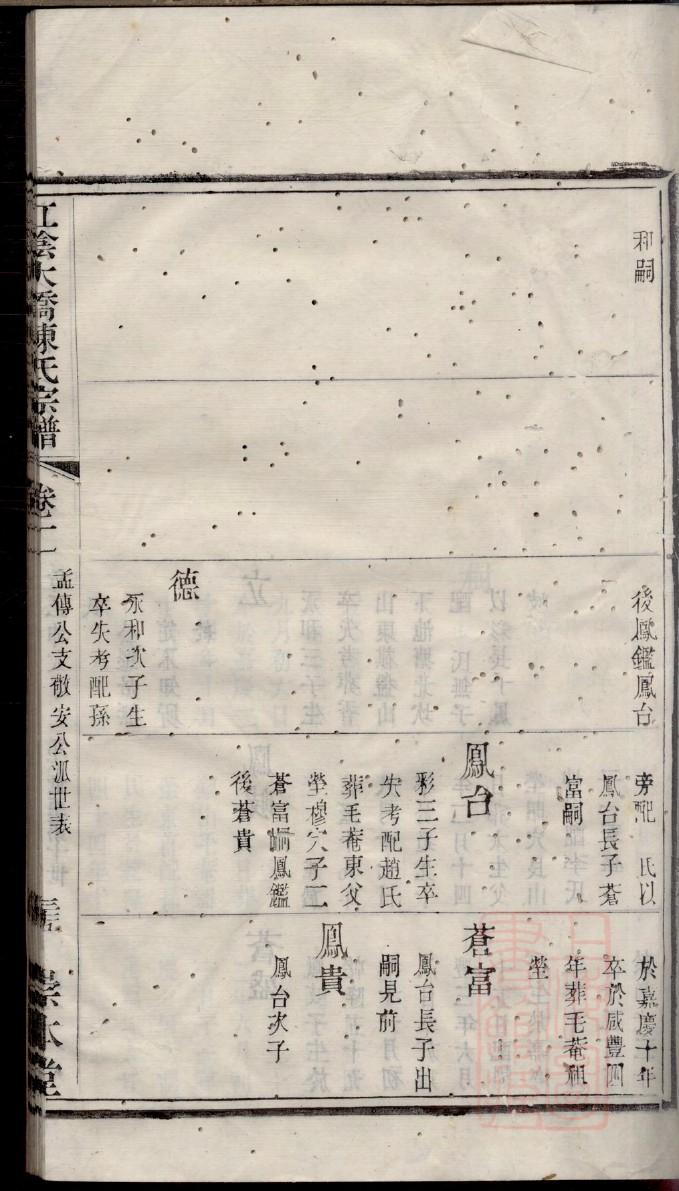 和嗣
後鳳鑑鳳台
德
永和次子生
卒失考配孫
旁配　氏以
鳳台長子蒼
富嗣
鳳台
彩三子生卒
失考配趙氏
葬毛菴東父
塋穆穴子二
蒼富嗣鳳鑑
後蒼貴
於嘉慶十年
卒於咸豐四
年葬毛菴祖
塋
蒼富
鳳台長子出
嗣見前
鳳貴
鳳台次子
江陰大橋陳氏宗譜
卷二
孟傳公支敬安公派世表